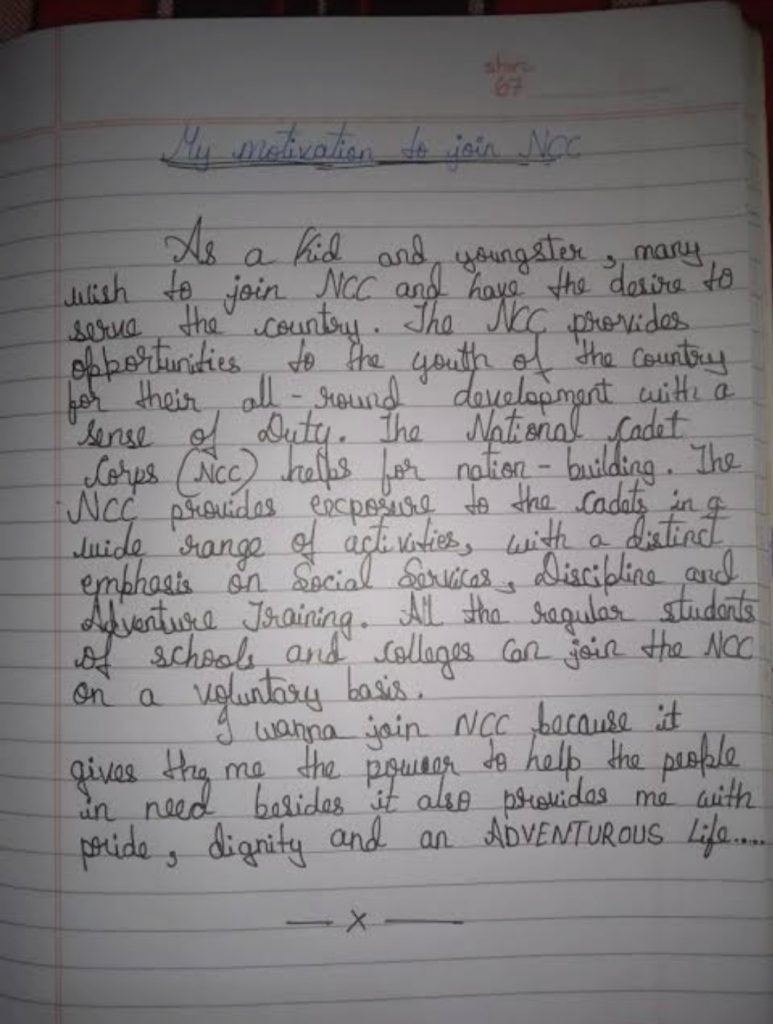 shiv
67
My motivation to join NCC
As a kid and youngster, many
wish to join NCC and have the desire to
serve the country. The NCC provides
opportunities to the youth of the country
for their all-round development with a
sense of Duty. The National Cadet
Corps (NCC) helps for nation-building. The
NCC provides exposure to the Cadets in a
wide range of activities, with a distinct
emphasis on Social Services, Discipline and
Adventure Training. All the regular students
of schools and colleges can join the NCC
on a voluntary basis.
I wanna join NCC because it
gives the me the power to help the people
in need besides it also provides me with
pride, dignity and an ADVENTUROUS Life.....
— x —